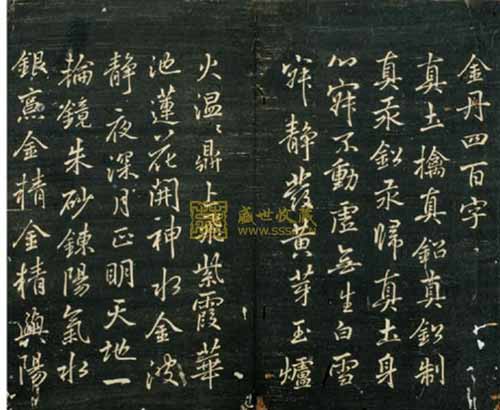 金丹四百字
真土擒真鉛真鉛制
真汞鉛汞歸真土身
心寂不動虛無生白雪
寂靜發黃芽玉爐
火温〻鼎上飛紫霞華
池蓮花開神水金波
静夜深月正明天地一
輪鏡朱砂鍊陽氣水
銀烹金精金精與陽
盛世收藏